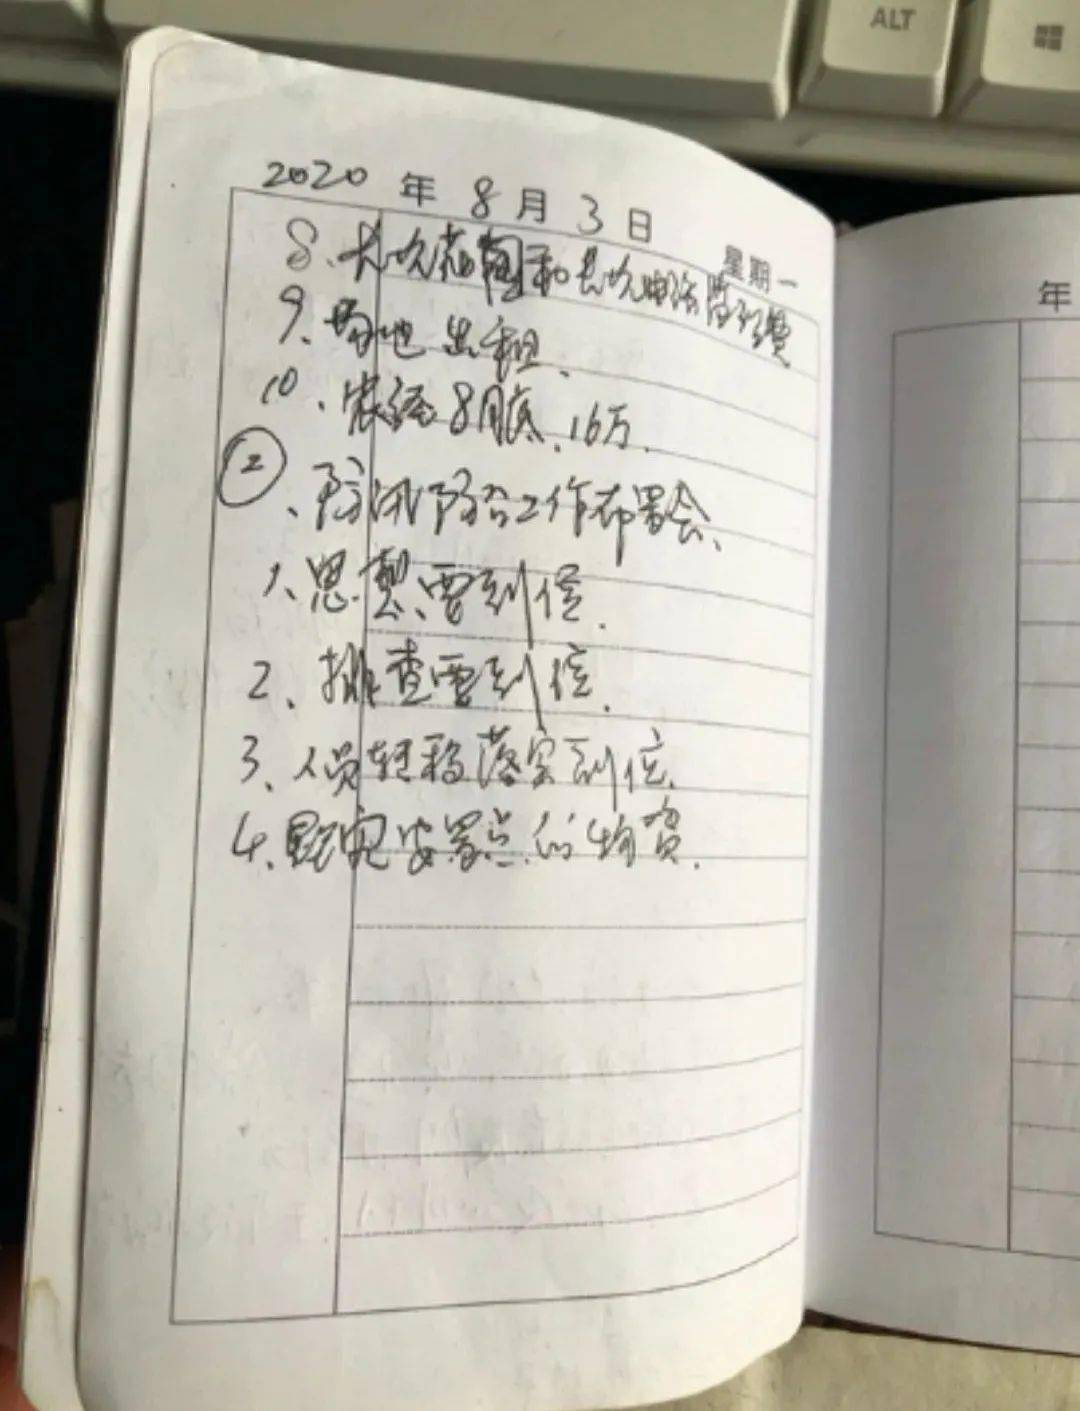 ALT
2020 年 8 月 3 日
星期一
8、长吹花园和长吹
9、场地出租、
10、8月底、16万、
② 、防汛防台工作布署会、
1、思想要到位、
2、排查要到位、
3、人员转移落实到位、
4、安置点的物资、
年